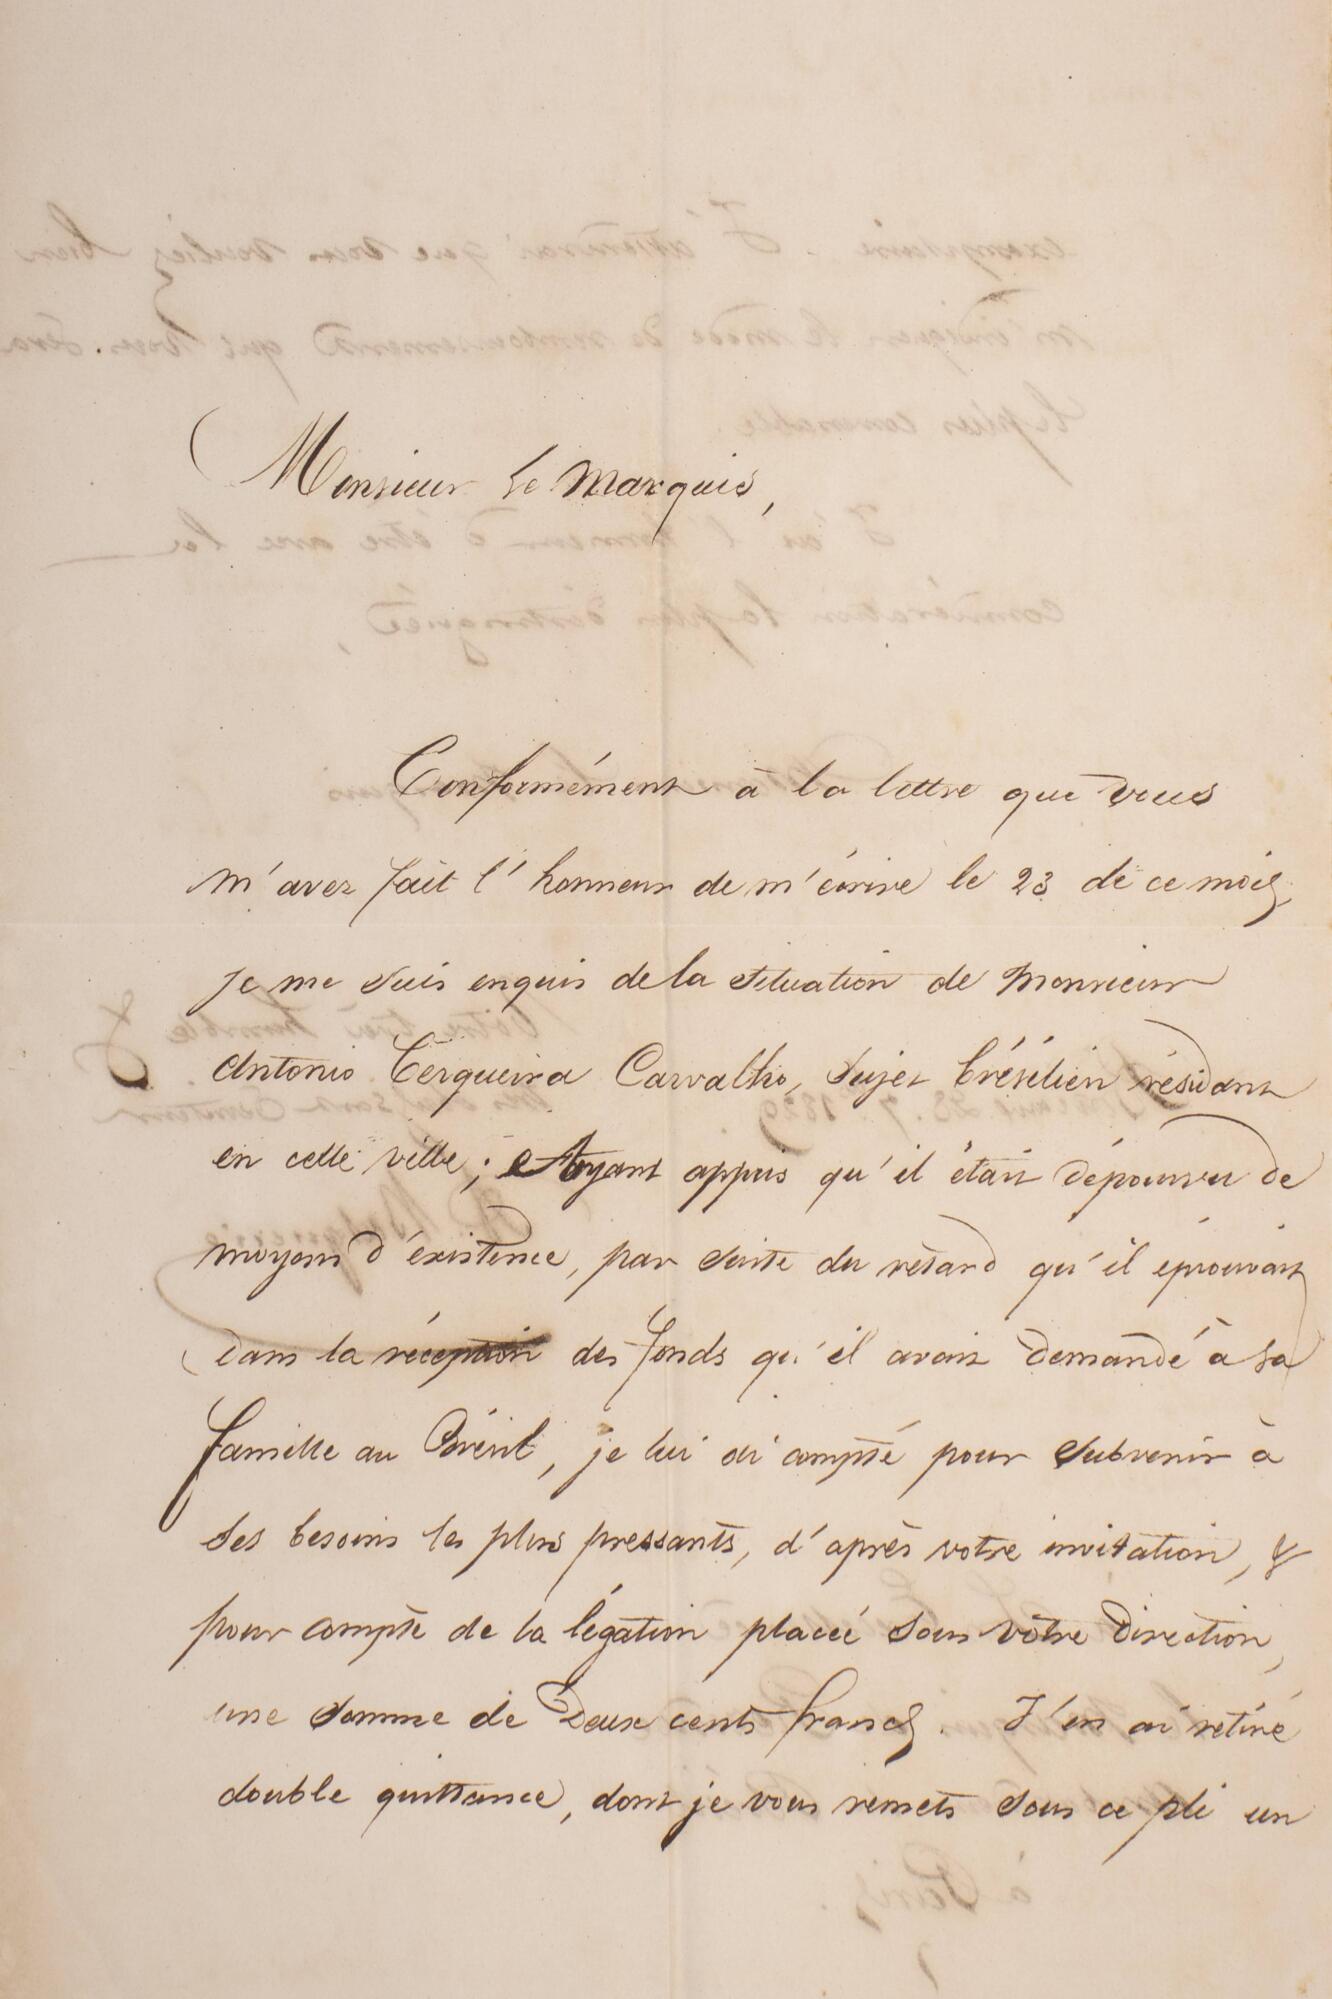 Monsieur le Marquis,
Conformément à la lettre que vous
m'avez fait l'honneur de m'écrire le 23 de ce mois,
je me suis enquis de la situation de Monsieur
Antonio Cerqueira Carvalho, sujet brésilien résidant
en cette ville ; et ayant appris qu'il était dépourvu de
moyens d'existence, par suite du retard qu'il éprouvait
dans la réception des fonds qu'il avait demandé à sa
famille au Brésil, je lui ai compté pour subvenir à
ses besoins les plus pressants, d'après votre invitation, &
pour compte de la légation placée sous votre direction,
une somme de Deux cents francs. J'en ai retiré
double quittance, dont je vous remets sous ce pli un